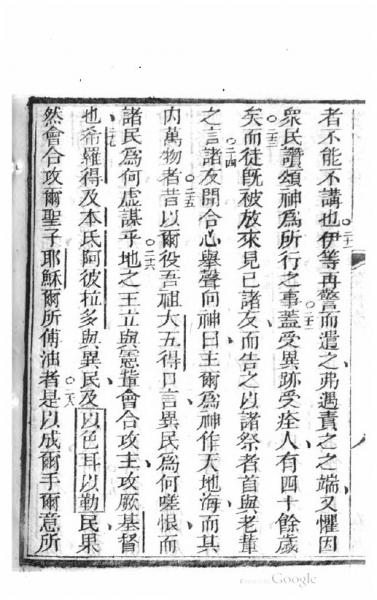 者不能不講也○二一伊等再警而遣之弗遇責之之端又懼因
衆民讚頌神爲所行之事○二二蓋受異跡受痊人有四十餘歲
矣○二三而徒既被放來見己諸友而告之以諸祭者首與老輩
之言○二四諸友聞合心舉聲向神曰主爾爲神作天地海而其
內萬物者○二五昔以爾役吾祖大五得口言異民爲何嗟恨而
諸民爲何虛謀乎○二六地之王立與憲輩會合攻主攻厥基督
也○二七希羅得及本氏阿彼拉多與異民及以色耳以勒民果
然會合攻爾聖子耶穌爾所傅油者○二八是以成爾手爾意所
Google